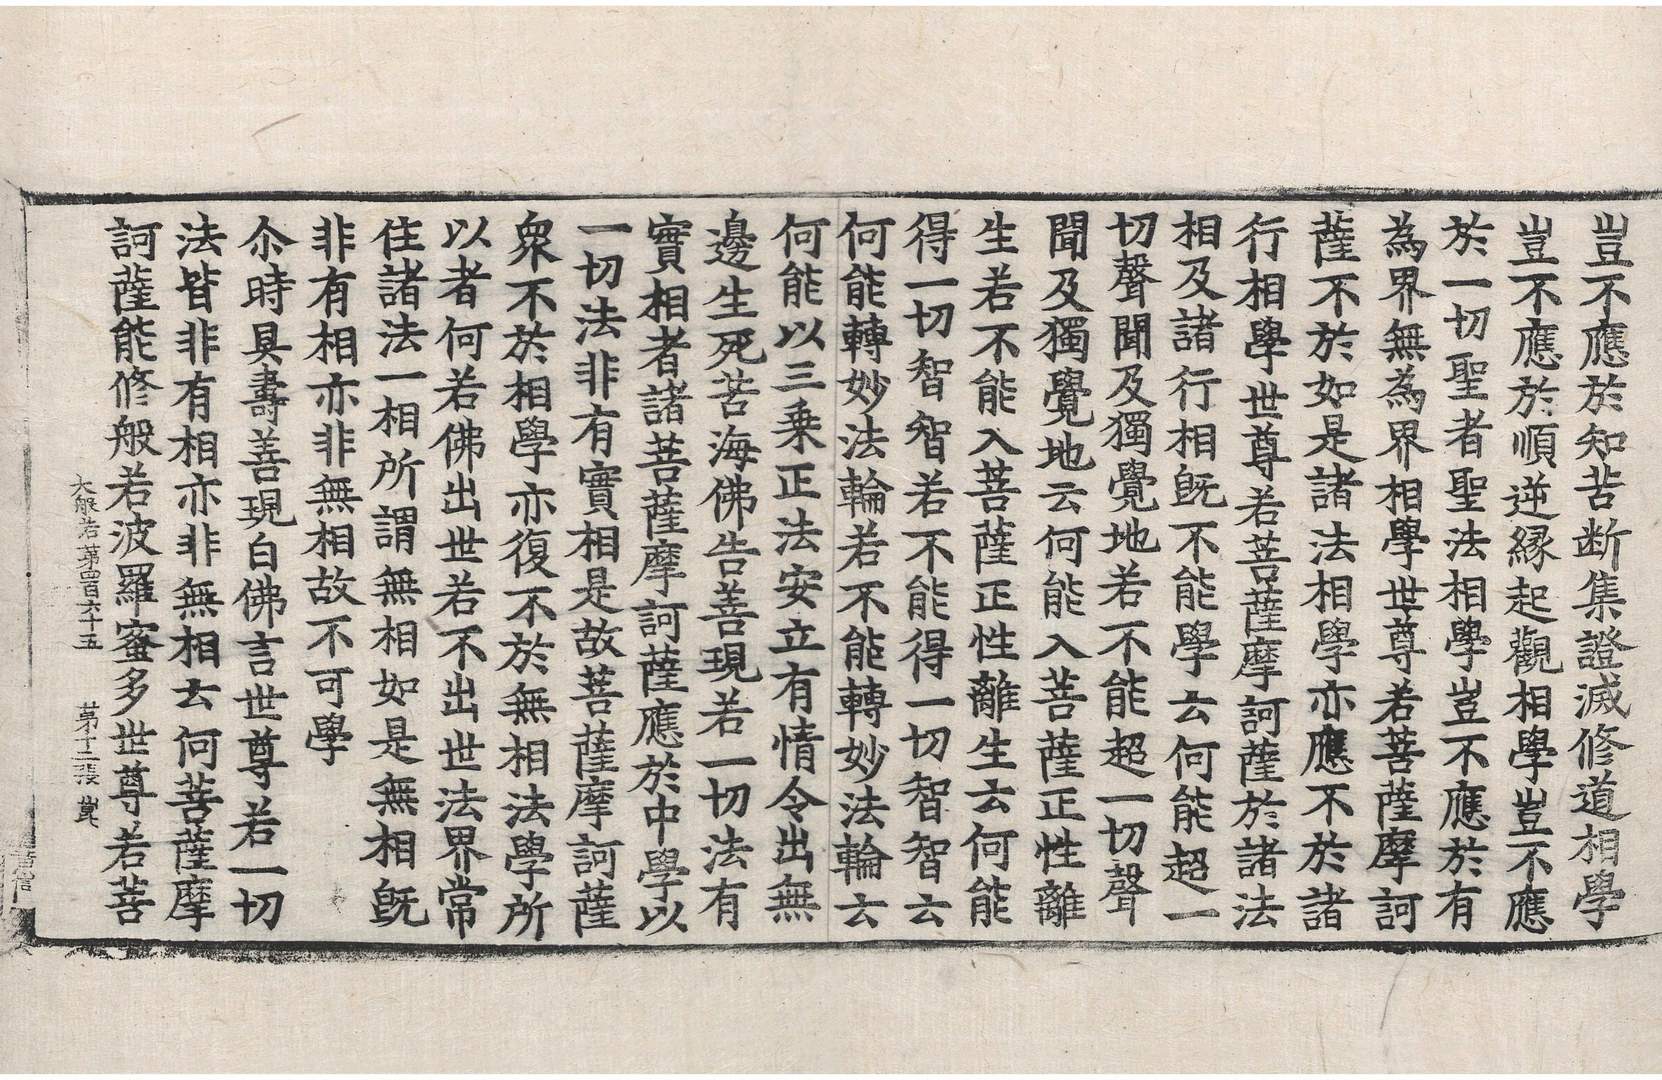 豈不應於知苦断集證滅修道相學
豈不應於順逆縁起觀相學豈不應
於一切聖者聖法相學豈不應於有
為界無為界相學世尊若菩薩摩訶
薩不於如是諸法相學亦應不於諸
行相學世尊若菩薩摩訶薩於諸法
相及諸行相旣不能學云何能超一
切聲聞及獨覺地若不能超一切聲
聞及獨覺地云何能入菩薩正性離
生若不能入菩薩正性離生云何能
得一切智智若不能得一切智智云
何能轉妙法輪若不能轉妙法輪云
何能以三乗正法安立有情令出無
邊生死苦海佛告善現若一切法有
實相者諸菩薩摩訶薩應於中學以
一切法非有實相是故菩薩摩訶薩
衆不於相學亦復不於無相法學所
以者何若佛出世若不出世法界常
住諸法一相所謂無相如是無相旣
非有相亦非無相故不可學
尒時具壽善現白佛言世尊若一切
法皆非有相亦非無相云何菩薩摩
訶薩能修般若波羅蜜多世尊若菩
大般若第四百六十五 第十二張